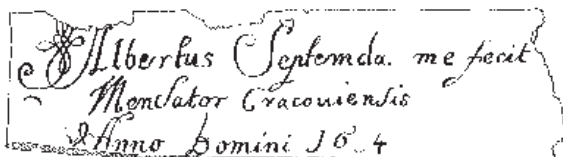 Albertus Septemda. me fecit
Mensator Cracoviensis
Anno Domini